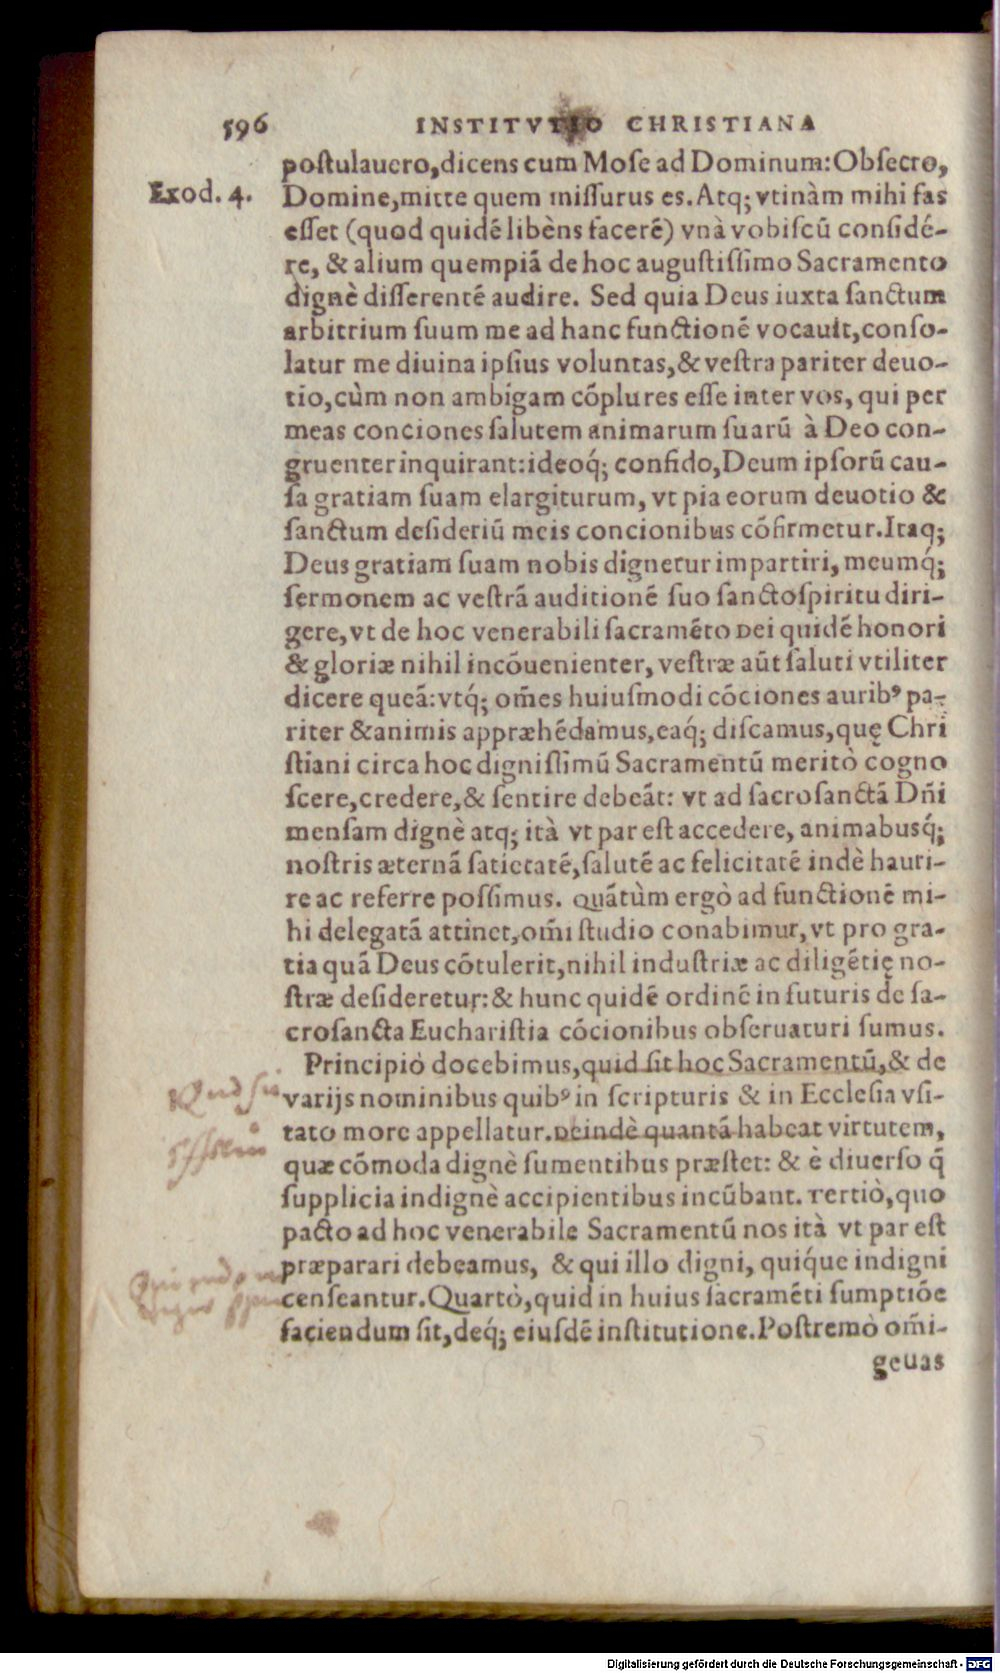 596 INSTITVTIO CHRISTIANA
postulauero, dicens cum Mose ad Dominum: Obsecro,
Exod. 4. Domine, mitte quem missurus es. Atq; vtinàm mihi fas
esset (quod quidē libèns facerē) vnà vobiscū considé-
re, & alium quempiā de hoc augustissimo Sacramento
dignè disserentē audire. Sed quia Deus iuxta sanctum
arbitrium suum me ad hanc functionē vocauit, conso-
latur me diuina ipsius voluntas, & vestra pariter deuo-
tio, cùm non ambigam cōplures esse inter vos, qui per
meas conciones salutem animarum suarū à Deo con-
gruenter inquirant: ideoq́; confido, Deum ipsorū cau-
sa gratiam suam elargiturum, vt pia eorum deuotio &
sanctum desideriū meis concionibus cōfirmetur. Itaq;
Deus gratiam suam nobis dignetur impartiri, meumq́;
sermonem ac vestrā auditionē suo sancto spiritu diri-
gere, vt de hoc venerabili sacramēto Dei quidē honori
& gloriæ nihil incōuenienter, vestræ aūt saluti vtiliter
dicere queā: vtq́; om̄es huiusmodi cōciones aurib⁹ pa-
riter & animis appræhēdamus, eaq́; discamus, quę Chri
stiani circa hoc dignissimū Sacramentū meritò cogno
scere, credere, & sentire debeāt: vt ad sacrosanctā Dn̄i
mensam dignè atq; ità vt par est accedere, animabusq́;
nostris æternā satietatē, salutē ac felicitatē indè hauri-
re ac referre possimus. Quātùm ergò ad functionē mi-
hi delegatā attinet, om̄i studio conabimur, vt pro gra-
tia quā Deus cōtulerit, nihil industriæ ac diligētię no-
stræ desideretur: & hunc quidē ordinē in futuris de sa-
crosancta Eucharistia cōcionibus obseruaturi sumus.
Principiò docebimus, quid sit hoc Sacramentū, & de
varijs nominibus quib⁹ in scripturis & in Ecclesia vsi-
tato more appellatur. Deindè quantā habeat virtutem,
quæ cōmoda dignè sumentibus præstet: & è diuerso q̄
supplicia indignè accipientibus incūbant. Tertiò, quo
pacto ad hoc venerabile Sacramentū nos ità vt par est
præparari debeamus, & qui illo digni, quiq́ue indigni
censeantur. Quartò, quid in huius sacramēti sumptiōe
faciendum sit, deq́; eiusdē institutione. Postremò om̄i-
geuas
Digitalisierung gefördert durch die Deutsche Forschungsgemeinschaft - DFG